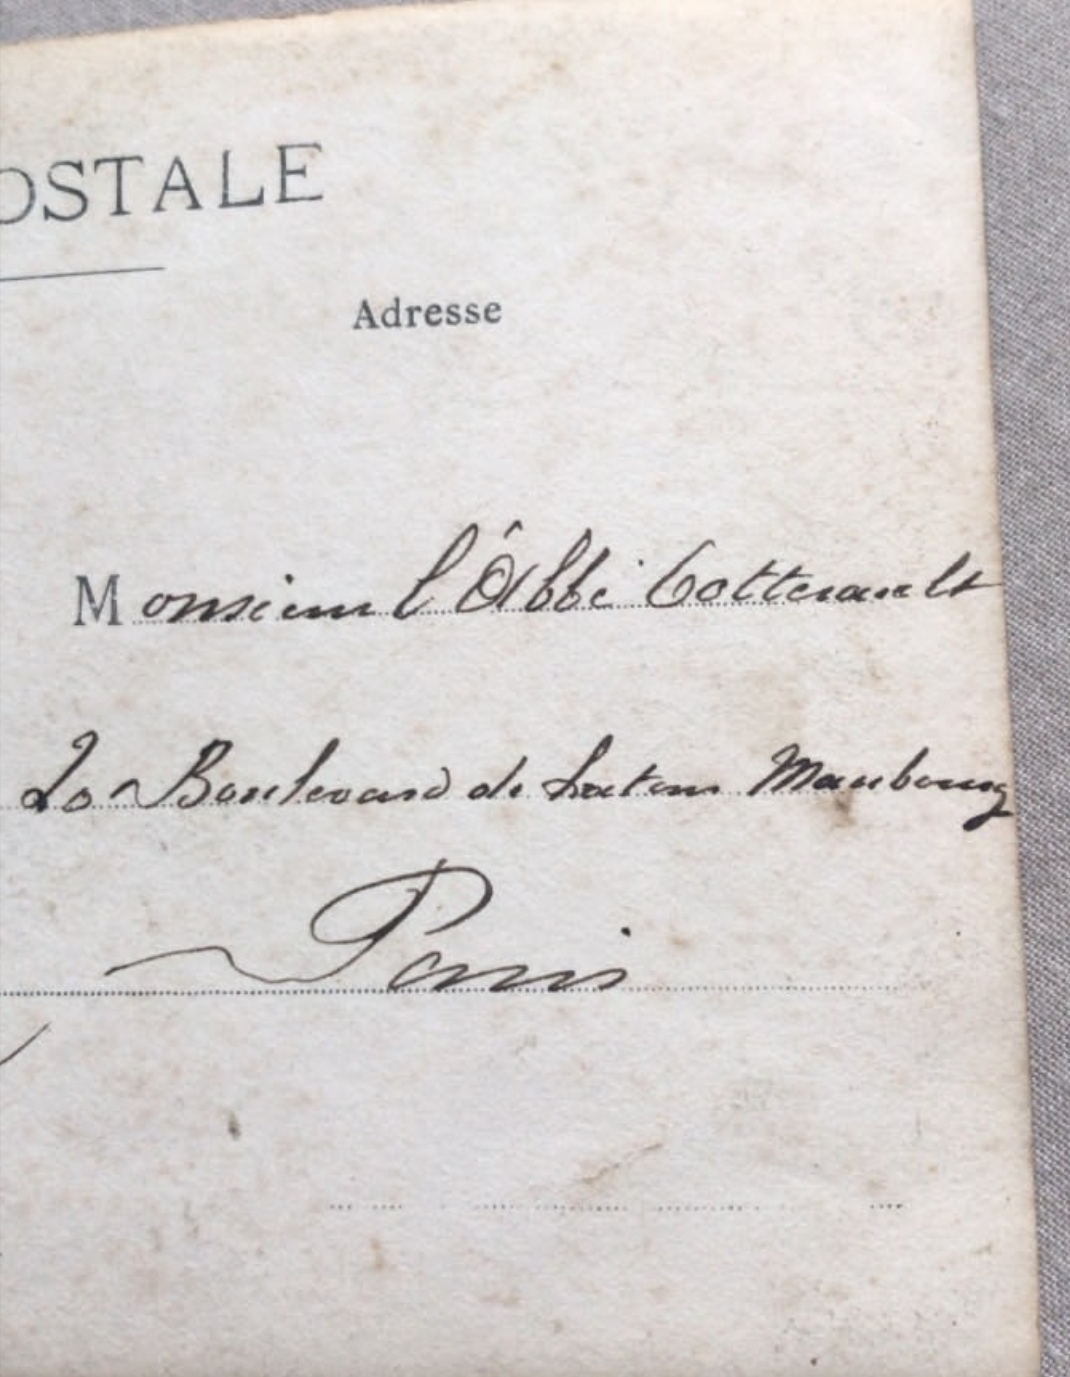 OSTALE
Adresse
Monsieur l'Abbé Cottereault
20 Boulevard de Latour Maubourg
Paris